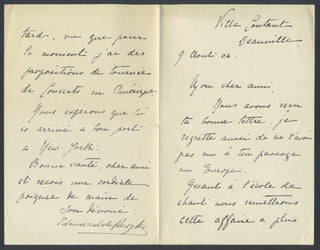 Villa Coutant
Deauville
9 Août 04.
Mon cher ami,
Nous avons reçu
ta bonne lettre, je
regrette aussi de ne t'avoir
pas vu à ton passage
en Europe.
Quant à l'école de
chant nous remettrons
cette affaire à plus
tard, vu que pour
le moment j'ai des
propositions de tournées
de Concerts en Amérique
Nous espérons que tu
es arrivé à bon port
à New York.
Bonne santé, cher ami
et reçois une cordiale
poignée de mains de
Ton dévoué
Edouard de Reszke